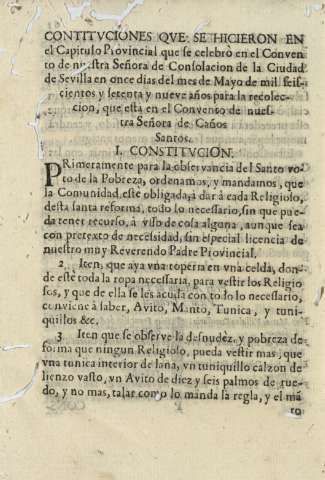 CONTITVCIONES QVE SE HICIERON EN
el Capitulo Provincial que se celebrò en el Conven
to de nuestra Señora de Consolacion de la Ciudad
de Sevilla en once dias del mes de Mayo de mil, seis-
cientos y setenta y nueve años para la recolec-
cion, que està en el Convento de nues-
tra Señora de Caños
Santos.
I. CONSTITVCION.
PRimeramente para la observancia del Santo vo-
to de la Pobreza, ordenamos, y mandamos, que
la Comunidad, este obligada, à dàr à cada Religioso,
desta santa reforma, todo lo necessario, sin que pue
da tener recurso, à viso de cosa alguna, aunque sea
con pretexto de necessidad, sin especial licencia de
nuestro muy Reverendo Padre Provincial.
2. Iten, que aya vna roperia en vna celda, don-
de estè toda la ropa necessaria, para vestir los Religio
sos, y que de ella se les acuda con todo lo necessario,
conviene à saber, Avito, Manto, Tunica, y tuni-
quillos &c.
3. Iten que se observe la desnudèz, y pobreza de
forma que ningun Religioso, pueda vestir mas, que
vna tunica interior de lana, vn tuniquillo calzon de
lienzo vasto, vn Avito de diez y seis palmos de rue-
do, y no mas, talar como lo manda la regla, y el mã
to